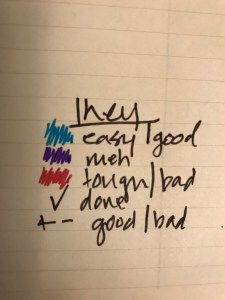 key
easy/good
meh
tough/bad
✓ done
+ - good/bad